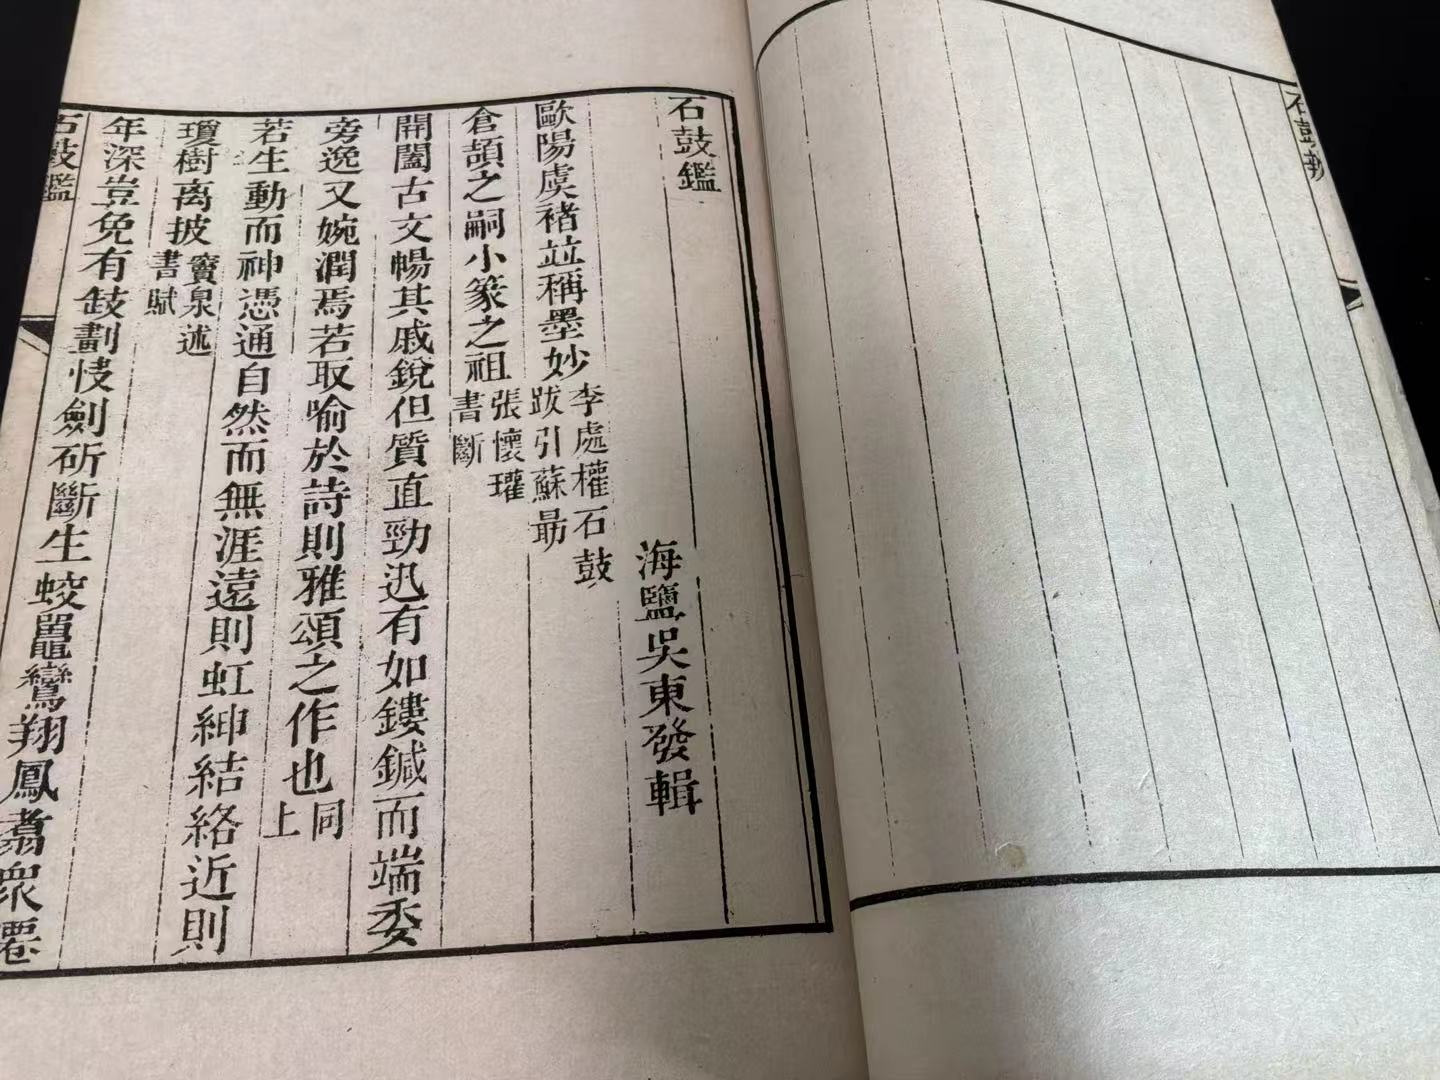 石鼓鑑
海鹽吳東發輯
歐陽虞褚竝稱墨妙李處權石鼓
跋引蘇勗
倉頡之嗣小篆之祖張懷瓘
書斷
開闔古文暢其戚銳但質直勁迅有如鏤鍼而端委
旁逸又婉潤焉若取喻於詩則雅頌之作也同
上
若生動而神憑通自然而無涯遠則虹紳結絡近則
瓊樹离披竇泉述
書賦
年深豈免有缺劃快劍斫斷生蛟鼉鸞翔鳳翥眾僊
石鼓鑑
石鼓辨